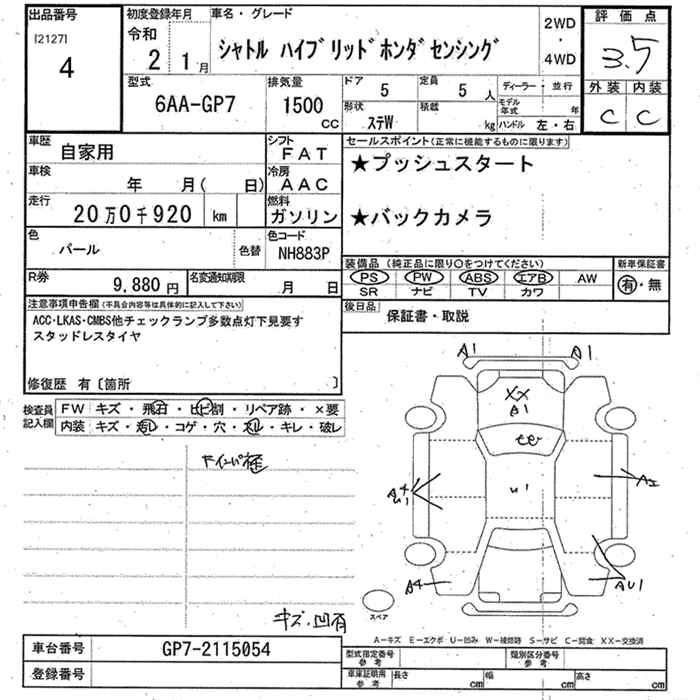 出品番号
[2127]
4
初度登録年月
令和
2 1月
車名・グレード
シャトル ハイブリッド ホンダ センシング
2WD
・
4WD
評価点
3.5
外装 内装
C C
型式
6AA-GP7
排気量
1500
cc
ドア
5
定員
5人
形状
ステW
積載
kg
ディーラー・並行
モデル年式 年
ハンドル 左・右
車歴
自家用
シフト
FAT
車検
年 月( 日)
冷房
AAC
走行
20万0千920 km
燃料
ガソリン
色
パール
色替
色コード
NH883P
R券
9,880円
名変通知期限
月 日
セールスポイント(正常に機能するものに限ります)
★プッシュスタート
★バックカメラ
装備品(純正品に限り○をつけてください)
新車保証書
PS PW ABS エアB AW
SR ナビ TV カワ
有・無
後日品
保証書・取説
注意事項申告欄(不具合内容等は具体的に記入して下さい)
ACC・LKAS・CMBS他チェックランプ多数点灯下見要す
スタッドレスタイヤ
修復歴 有〔箇所 〕
検査員記入欄
FW キズ・飛石・ヒビ割・リペア跡・×要
内装 キズ・汚レ・コゲ・穴・スレ・キレ・破レ
キズ、凹有
A1 A1
XX
A1
U1
A4
U1
A4
AU1
スペア
A-キズ E-エクボ U-凹み W-補修跡 S-サビ C-腐食 XX-交換済
車台番号
GP7-2115054
登録番号
型式指定番号
参考
類別区分番号
参考
車庫証明用
参考
長さ cm
幅 cm
高さ cm